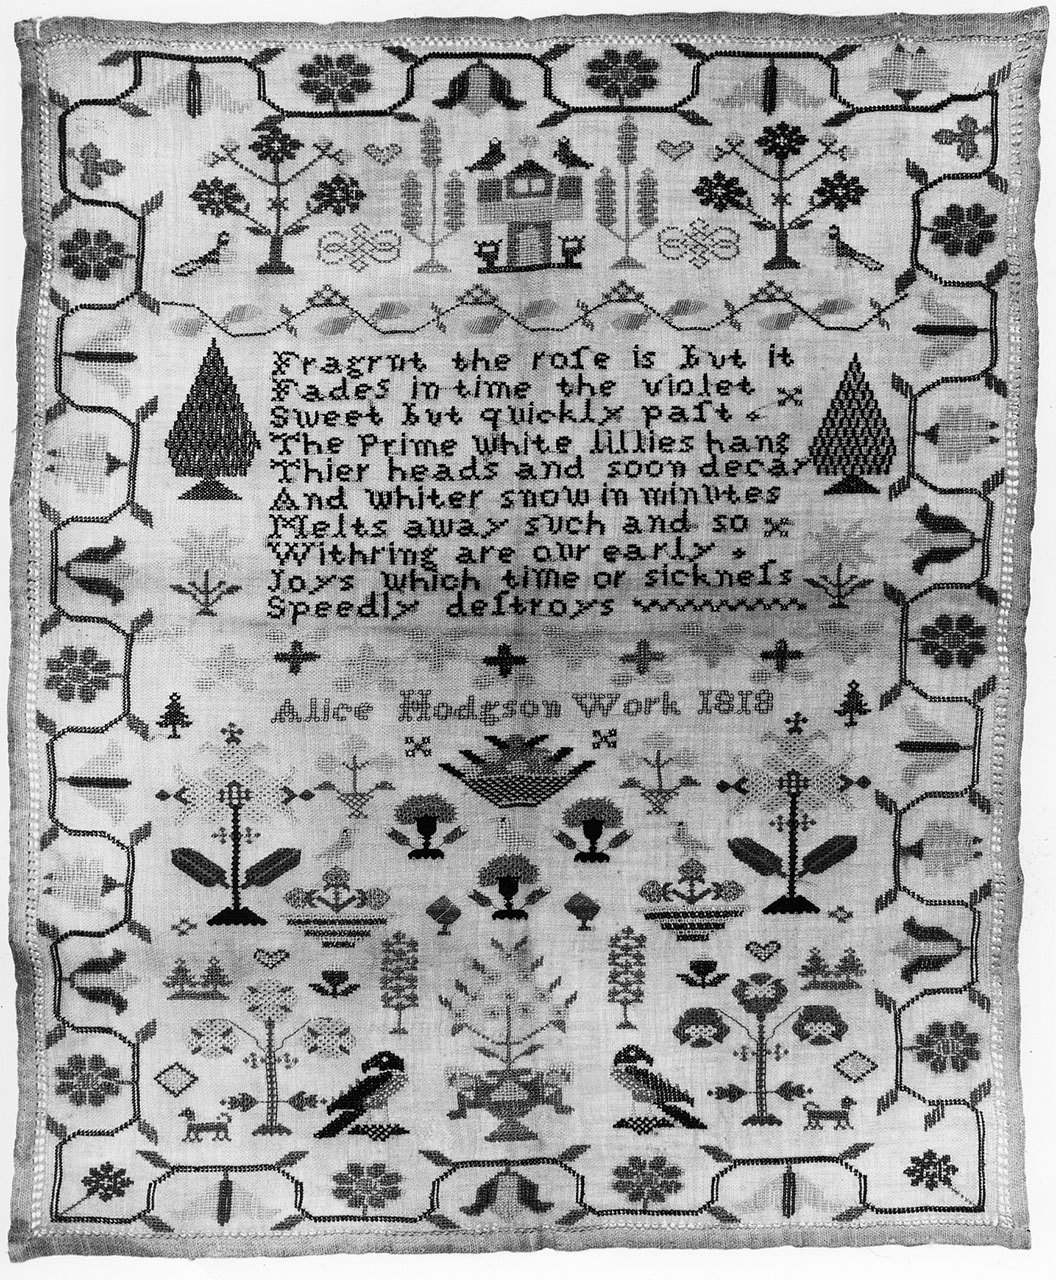 Fragrnt the roſe is but it
Fades in time the violet
Sweet but quickly paſt
The Prime white lillies hang
Thier heads and soon decay
And whiter snow in minutes
Melts away such and so
Withring are our early
Joys which time or sickneſs
Speedly deſtroys
Alice Hodgson Work 1818